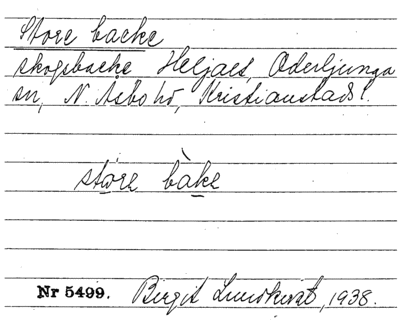 Store backe
skogsbacke Heljaes, Oderljunga
sn, N. Åsbo hd, Kristianstads l.
stóre bàke
Nr 5499. Birgit Lundkvist, 1938.